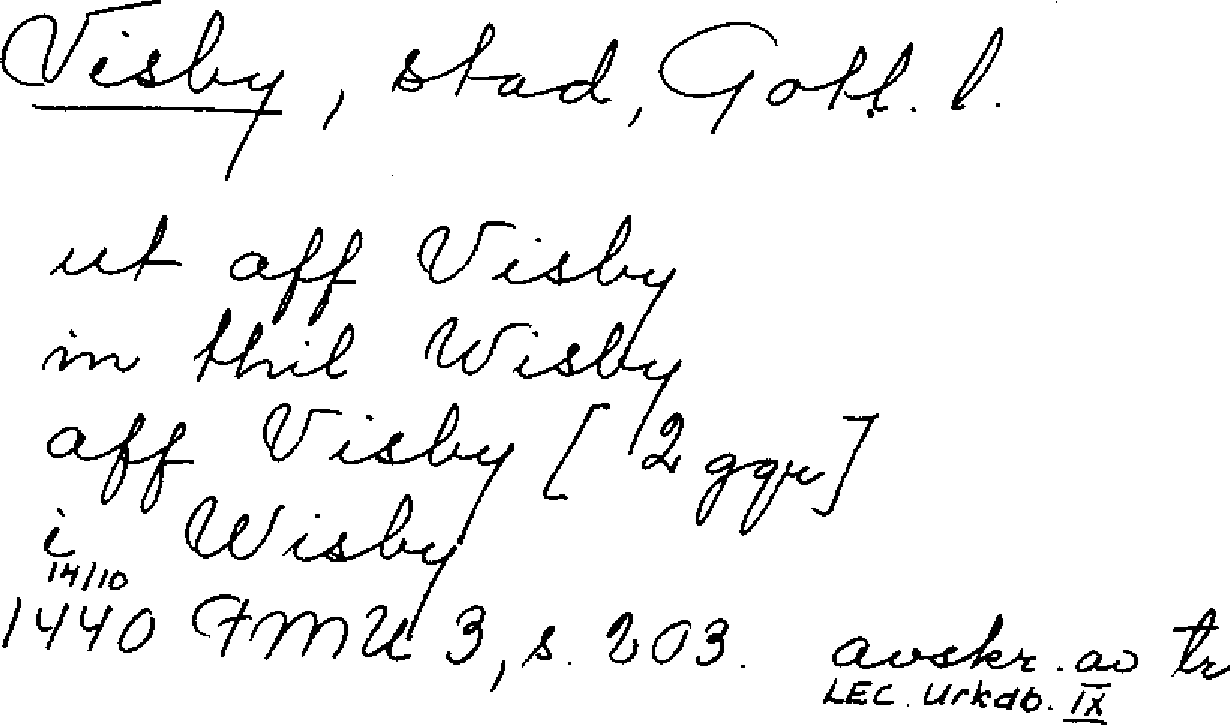 Visby, stad, Gotl. l.
ut aff Visby
in thil Wisby
aff Visby [2 ggr]
i Wisby
14/10
1440 FMU 3, s. 203. avskr. av tr
LEC. Urkdb. IX